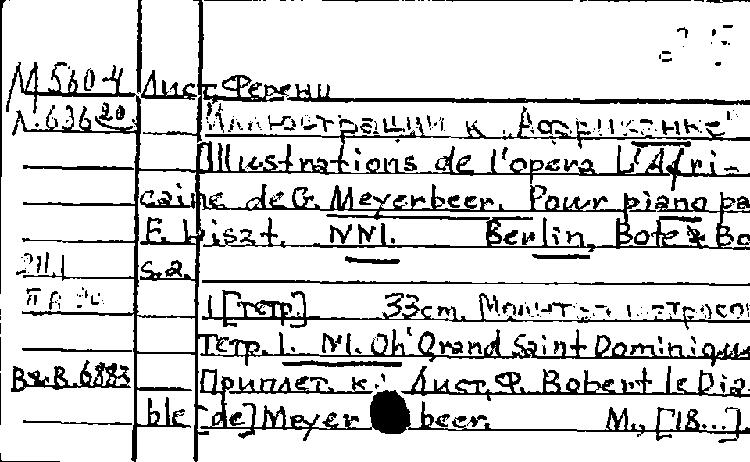 М 560-4 Лист, Ференц
Л. 636 20 Иллюстрации к "Африканке"
Illustrations de l'opera L'Afri-
caine de G. Meyerbeer. Pour piano pa
F. Liszt. NN1. Berlin, Bote & Bo
s.a.
1 [тетр.] 33cm. Молитва матросов
Тетр. 1. N1. Oh Grand Saint Dominiqu
B&B.6883 Приплет. к: Лист, Ф. Robert le Dia-
ble [de] Meyerbeer. М., [18...].